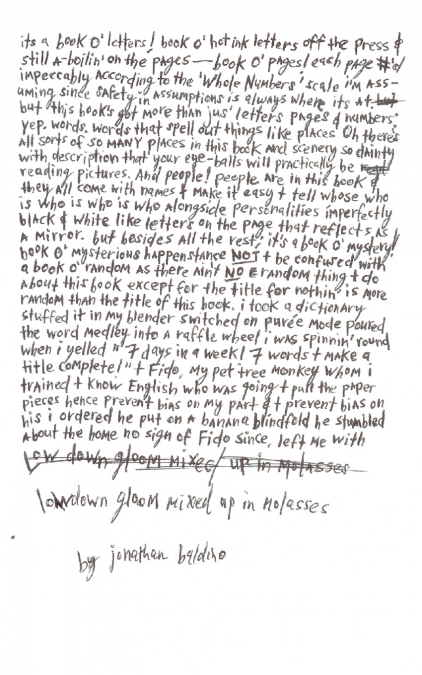 its a book o' letters! book o' hot ink letters off the press &
still a-boilin' on the pages — book o' pages! each page #'d
impeccably according to the 'whole numbers' scale i'm ass-
uming since safety in assumptions is always where its at.
but this book's got more than jus' letters pages & numbers
yep. words. words that spell out things like places oh there's
all sorts of so MANY places in this book and scenery so dainty
with description that your eye-balls will practically be
reading pictures. And people! people are in this book &
they all come with names t make it easy t tell whose who
is who is who is who alongside personalities imperfectly
black & white like letters on the page that reflects as
a mirror. but besides all the rest, it's a book o' mystery!
book o' mysterious happenstance NOT t be confused with
a book o' random as there ain't NO random thing t do
about this book except for the title for nothin' is more
random than the title of this book. i took a dictionary
stuffed it in my blender switched on purée mode poured
the word medley into a raffle wheel i was spinnin' round
when i yelled "7 days in a week! 7 words t make a
title complete!" t Fido, my pet tree monkey whom i
trained t know English who was going t pull the paper
pieces hence prevent bias on my part & t prevent bias on
his i ordered he put on a banana blindfold he stumbled
about the home no sign of Fido since, left me with
low down gloom mixed up in molasses
lowdown gloom mixed up in molasses
by jonathan baldino